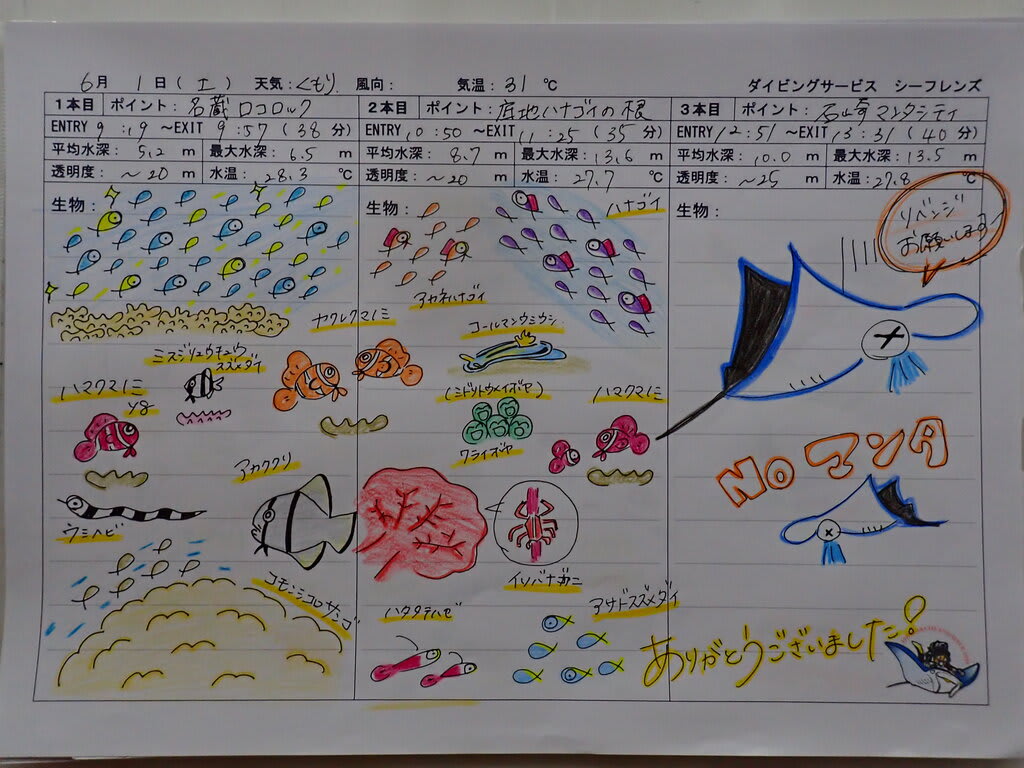 6月 1日(土) 天気:くもり 風向: 気温:31 ℃ ダイビングサービス シーフレンズ
1本目 ポイント: 名蔵ロコロック
ENTRY 9:19 ～EXIT 9:57 (38 分)
平均水深: 5.2 m 最大水深: 6.5 m
透明度: ～20 m 水温: 28.3 ℃
生物:
ヤクレクマノミ
ミスジリュウキュウ
スズメダイ
ハマクマノミ
yg
アカククリ
ウミヘビ
コモンシコロサンゴ
2本目 ポイント: 底地ハナゴイの根
ENTRY 10:50 ～EXIT 11:25 (35 分)
平均水深: 8.7 m 最大水深: 13.6 m
透明度: ～20 m 水温: 27.7 ℃
生物:
ハナゴイ
アカネハナゴイ
コールマンウミウシ
(ミドリトウメイボヤ)
ハマクマノミ
ワライボヤ
イソバナガニ
ハタタテハゼ
アサドスズメダイ
3本目 ポイント: 石崎マンタシティ
ENTRY 12:51 ～EXIT 13:31 (40 分)
平均水深: 10.0 m 最大水深: 13.5 m
透明度: ～25 m 水温: 27.8 ℃
生物:
リベンジ
お願いします
No マンタ
ありがとうございました!